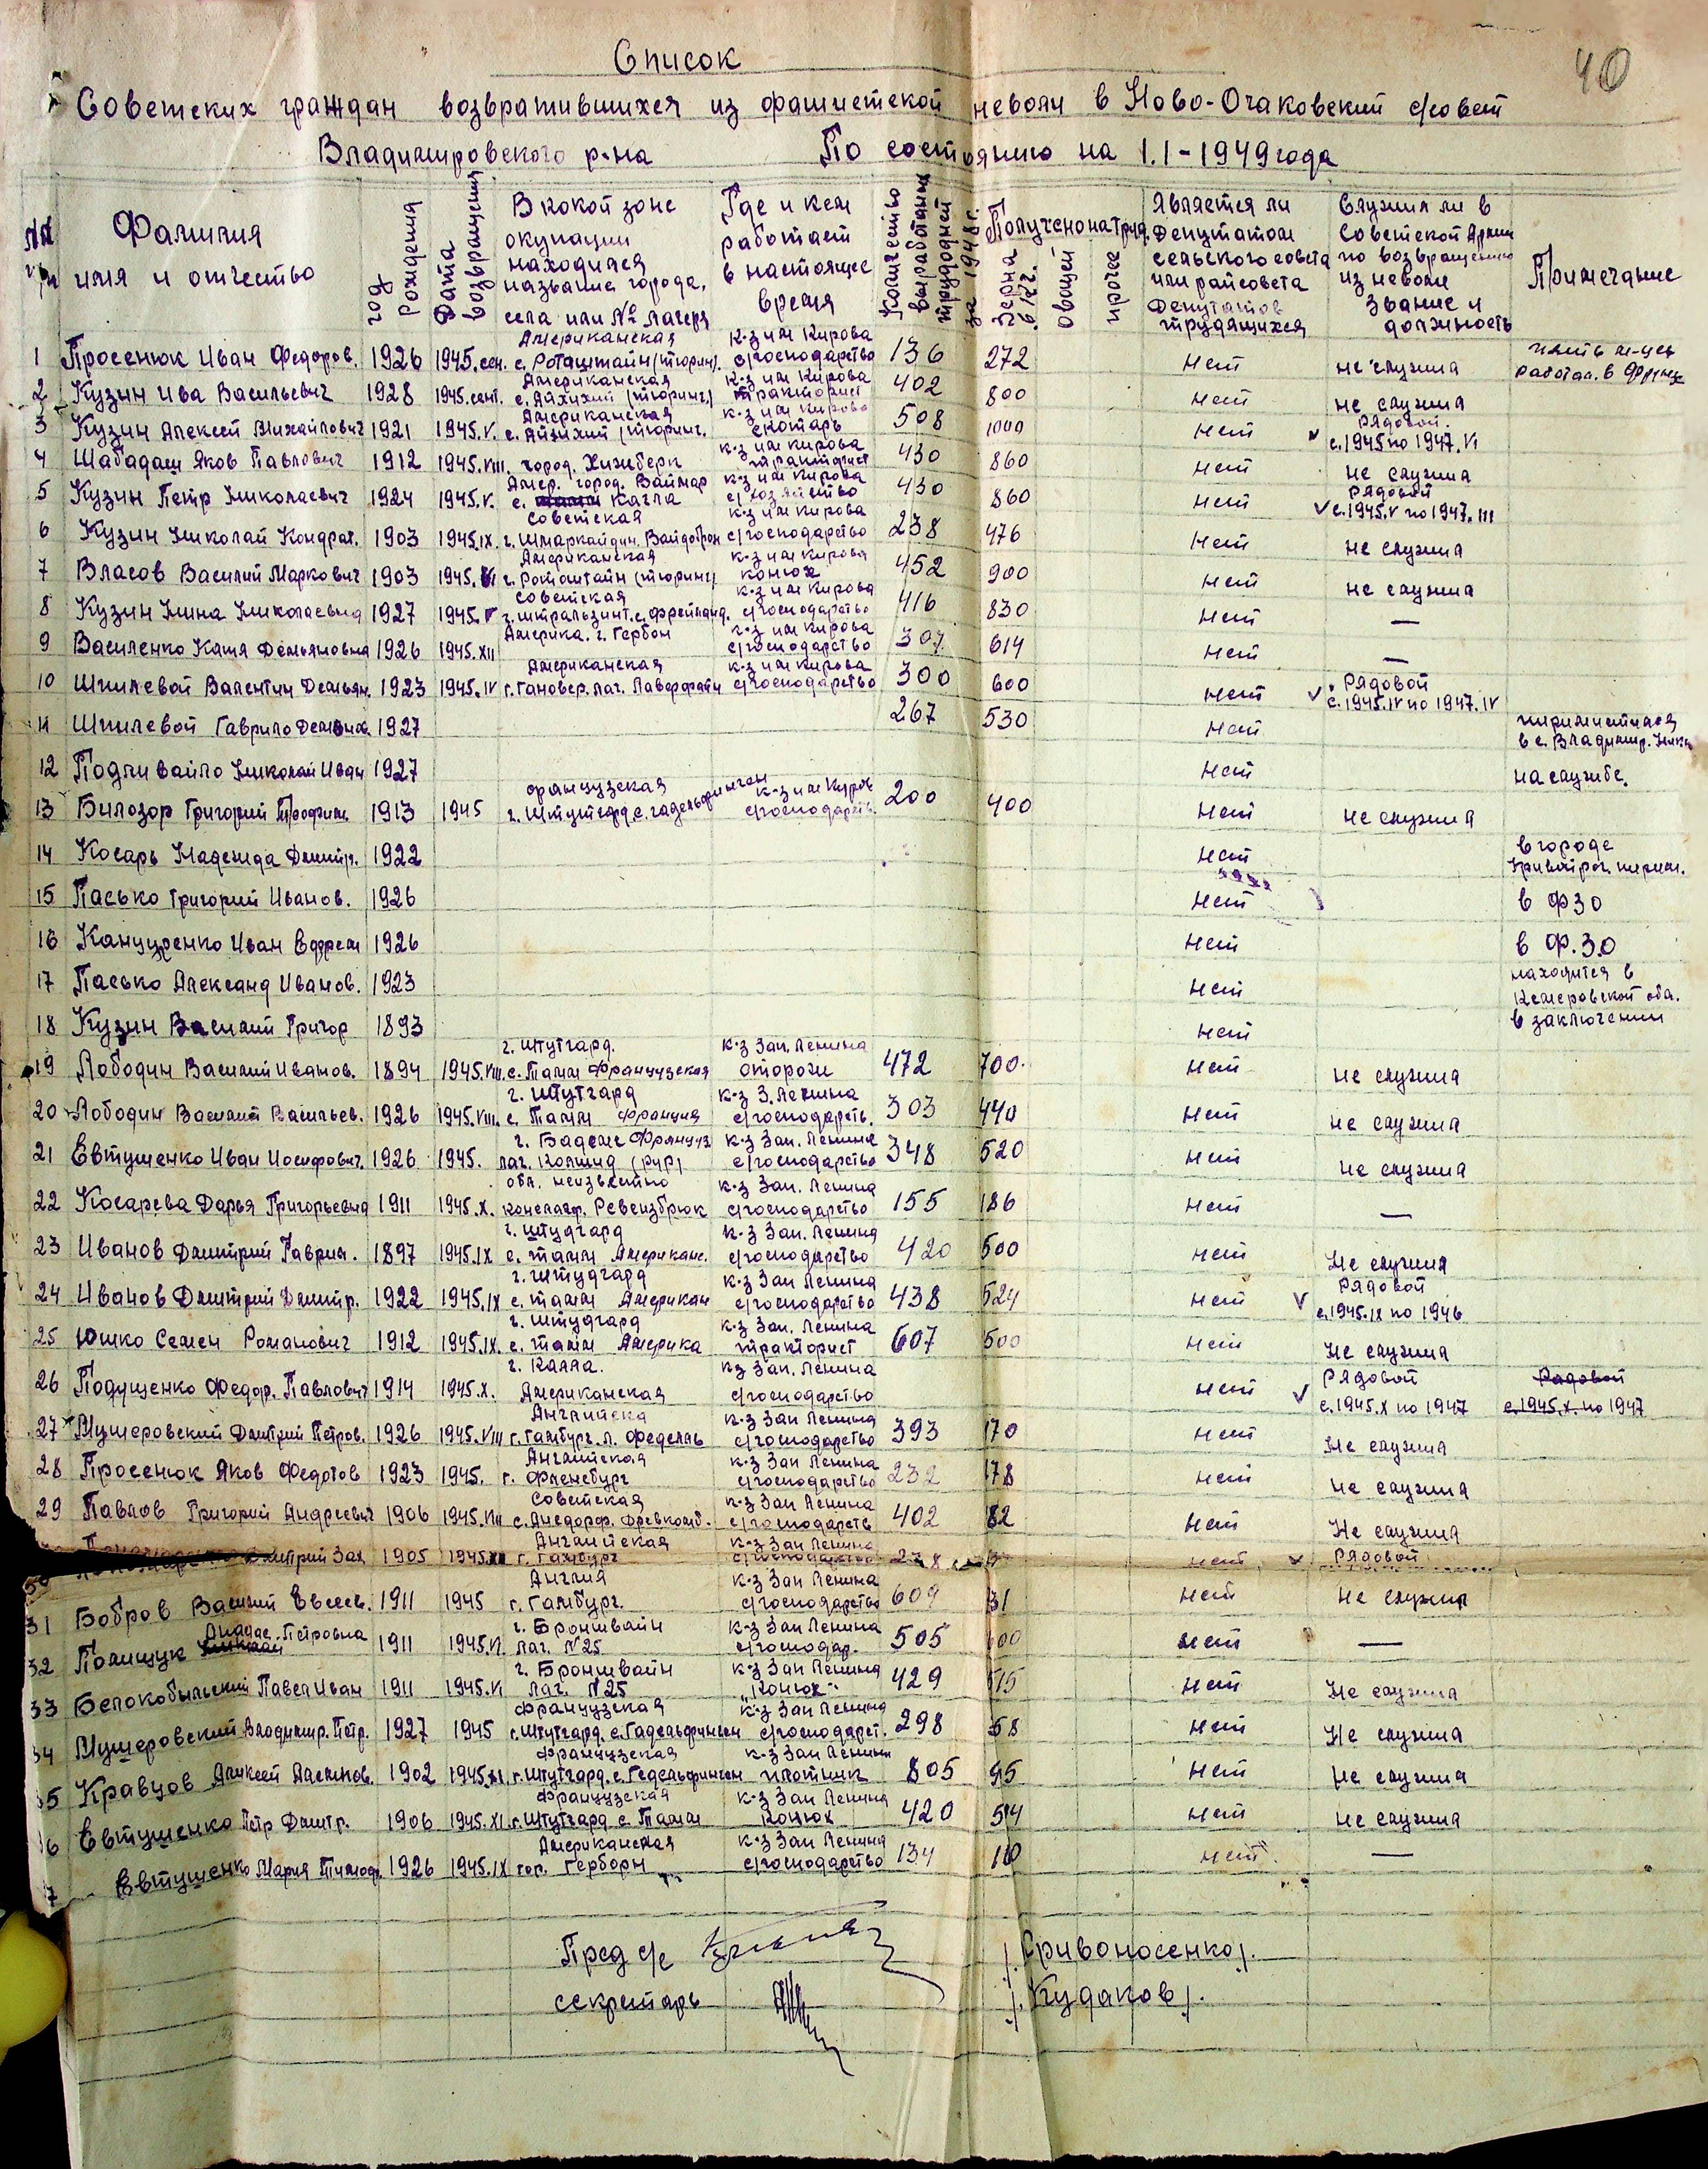 40
Список
Советских граждан возвратившихся из фашистской неволи в Ново-Очаковский с/совет
Владимировского р-на По состоянию на 1.1-1949 года
№№ п/п Фамилия имя и отчество
год рождения
Дата возвращения
В какой зоне окупации находился название города, села или № лагеря
Где и кем работает в настоящее время
Количество выработаных трудодней за 1948 г.
Получено на труд.
Зерна в кг.
овощей
прочее
Является ли Депутатом сельского совета или райсовета Депутатов трудящихся
Служил ли в Советской Армии по возвращению из неволи Звание и должность
Примечание
1 Просенюк Иван Федоров. 1926 1945.сен. Американская с. Роташтайн (тюринг). к-з им Кирова с/господарство 136 272 нет не служил работал. в
2 Кузин Ива Васильевич 1928 1945.сент. Американская с. Айхихий (тюринг) к-з им Кирова тракторист 402 800 нет не служил
3 Кузин Алексей Михайлович 1921 1945.V. Американская с. Айхихий (тюринг. к-з им Кирова скотарь 508 1000 нет рядовой. с.1945 по 1947.VI
4 Шабадаш Яков Павлович 1912 1945.VIII. город. Хизиберк к-з им Кирова тракторист 430 860 нет не служил
5 Кузин Петр Николаевич 1924 1945.V. Амер. город. Ваймар с. Кагла к-з им Кирова с/хозяйство 430 860 нет рядовой с.1945.V по 1947.III
6 Кузин Николай Кондрат. 1903 1945.IX. Советская к-з им Кирова с/господарство 238 476 нет не служил
7 Власов Василий Маркович 1903 1945. Американская с. Роташтайн (тюринг) к-з им Кирова конюх 452 900 нет не служил
8 Кузин Нина Николаевна 1927 1945.V Советская г. штральзинт. с. Фрейланд. к-з им Кирова с/господарство 416 830 нет —
9 Василенко Катя Демьяновна 1926 1945.XII Америка. г. Гербон к-з им Кирова с/господарство 307. 614 нет —
10 Шпилевой Валентин Демьян. 1923 1945.IV Американская г. Гановер. лаг. Лаверфайн к-з им Кирова с/господарство 300 600 нет Рядовой с.1945.IV по 1947.IV
11 Шпилевой Гаврило Демьян. 1927 267 530 нет в с. Владимир.
12 Подчивайло Николай Иван 1927 нет на службе.
13 Билозор Григорий Трофим. 1913 1945 французская г. Штутгард с. гадельфинген к-з им Киров с/господарств. 200 400 нет не служил
14 Косарь Надежда Дмитр. 1922 нет в городе
15 Пасько Григорий Иванов. 1926 нет в ФЗО
16 Канцуренко Иван Ефрем 1926 нет в Ф.З.О
17 Пасько Александ Иванов. 1923 нет находится в Кемеровской обл.
18 Кузин Василий Григор 1893 нет в заключении
19 Лободин Василий Иванов. 1894 1945.VIII. г. Штутгард. с. Тамм Французская к-з Зап. Ленина сторож 472 700. нет не служил
20 Лободин Василий Васильев. 1926 1945.VIII. г. Штутгард с. Тамм Франция к-з З. Ленина с/господарств. 303 440 нет не служил
21 Евтушенко Иван Иосифович. 1926 1945. г. Бадем Француз лаг. Колинд (рур) к-з Зап. Ленина с/господарство 348 520 нет не служил
22 Косарева Дарья Григорьевна 1911 1945.X. обл. неизвестно концлагр. Ревензбрюк к-з Зап. Ленина с/господарство 155 186 нет —
23 Иванов Дмитрий Гаврил. 1897 1945.IX г. штудгард с. тамм Американс. к-з Зап. Ленина с/господарство 420 500 нет Не служил
24 Иванов Дмитрий Дмитр. 1922 1945.IX г. Штудгард с. тамм Американ к-з Зап Ленина с/господарство 438 524 нет Рядовой с.1945.IX по 1946
25 Юшко Семен Романович 1912 1945.IX. г. Штудгард с. тамм Америка к-з Зап. Ленина тракторист 607 500 нет Не служил
26 Подущенко Федор. Павлович 1914 1945.X. г. Калла. Американская к-з Зап. Ленина с/господарство нет Рядовой с.1945.X по 1947 Рядовой с.1945.X. по 1947
27 Мущеровский Дмитрий Петров. 1926 1945.VIII Английска г. Гамбург. л. Федель к-з Зап Ленина с/господарство 393 170 нет Не служил
28 Просенюк Яков Федотов 1923 1945. Английская г. Фленсбург к-з Зап Ленина с/господарство 232 178 нет не служил
29 Павлов Григорий Андреевич 1906 1945.VIII Советская к-з Зап Ленина с/господарств 402 82 нет Не служил
Дмитрий Зах 1905 1945.XII Английская г. Гамбург к-з Зап Ленина нет Рядовой
31 Бобров Василий Евсеев. 1911 1945 Англия г. Гамбург. к-з Зап Ленина с/господарство 609 31 нет не служил
32 Полищук Петровна 1911 1945.VI. г. Броншвайн лаг. №25 к-з Зап Ленина с/господар. 505 нет —
33 Белокобыльский Павел Иван 1911 1945.VI г. Броншвайн лаг. №25 к-з Зап Ленина "конюх" 429 515 нет Не служил
34 Мущеровский Владимир. Петр. 1927 1945 Французская г. Штутгард. с. Гадельфинген к-з Зап Ленина с/господарст. 298 58 нет Не служил
35 Кравцов Алексей 1902 1945.XI Французская г. Штутгард. с. Гедельфинген к-з Зап Ленина плотник 805 95 нет не служил
6 Евтушенко Петр Дмитр. 1906 1945.XI. Французская г. Штутгард с. Тамм к-з Зап Ленина конюх 420 514 нет не служил
7 Евтушенко Мария Тимоф. 1926 1945.IX Американская гор. Герборн к-з Зап Ленина с/господарство 134 110 нет —
Пред с/с /Кривоносенко/.
секретарь /Кудаков/.